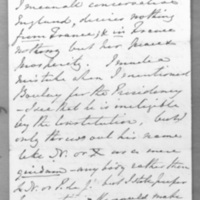 I mean all conservative
England, desires nothing
from France, & in France
nothing but her peace &
prosperity. I made a
mistake when I mentioned
for the Presidency
- I see that he is ineligible
by the Constitution, but I
only threw out his name
like N. or X as a mere
quidam - any body rather than
L.N. or P. de J. but I
would make